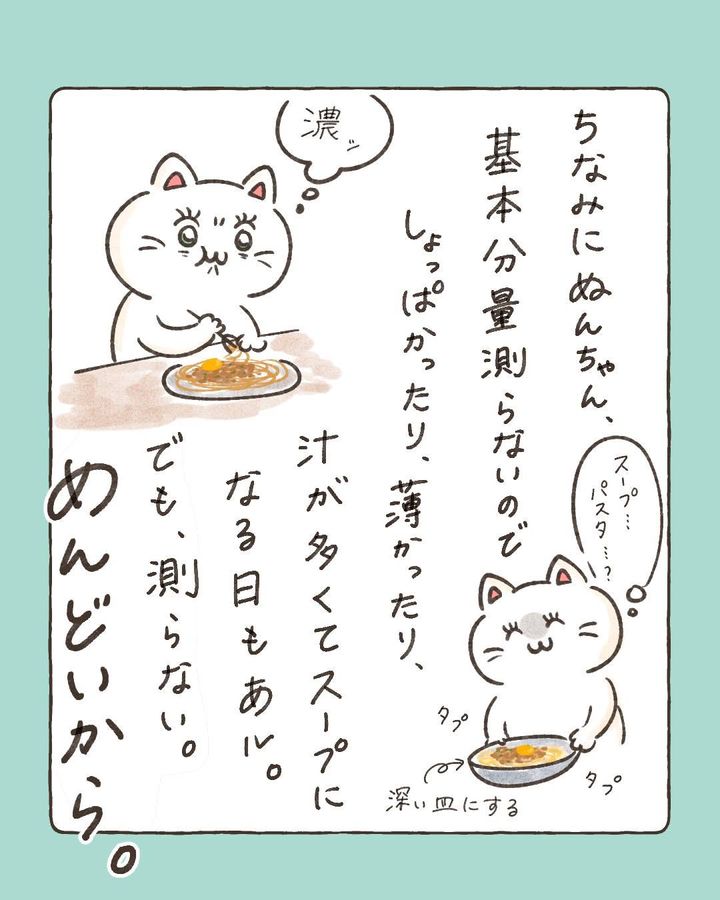 ちなみにぬんちゃん、
基本分量測らないので
しょっぱかったり、薄かったり、
汁が多くてスープに
なる日もあル。
でも、測らない。
めんどいから。
濃ッ
スープ…
パスタ…?
タプ
タプ
深い皿にする